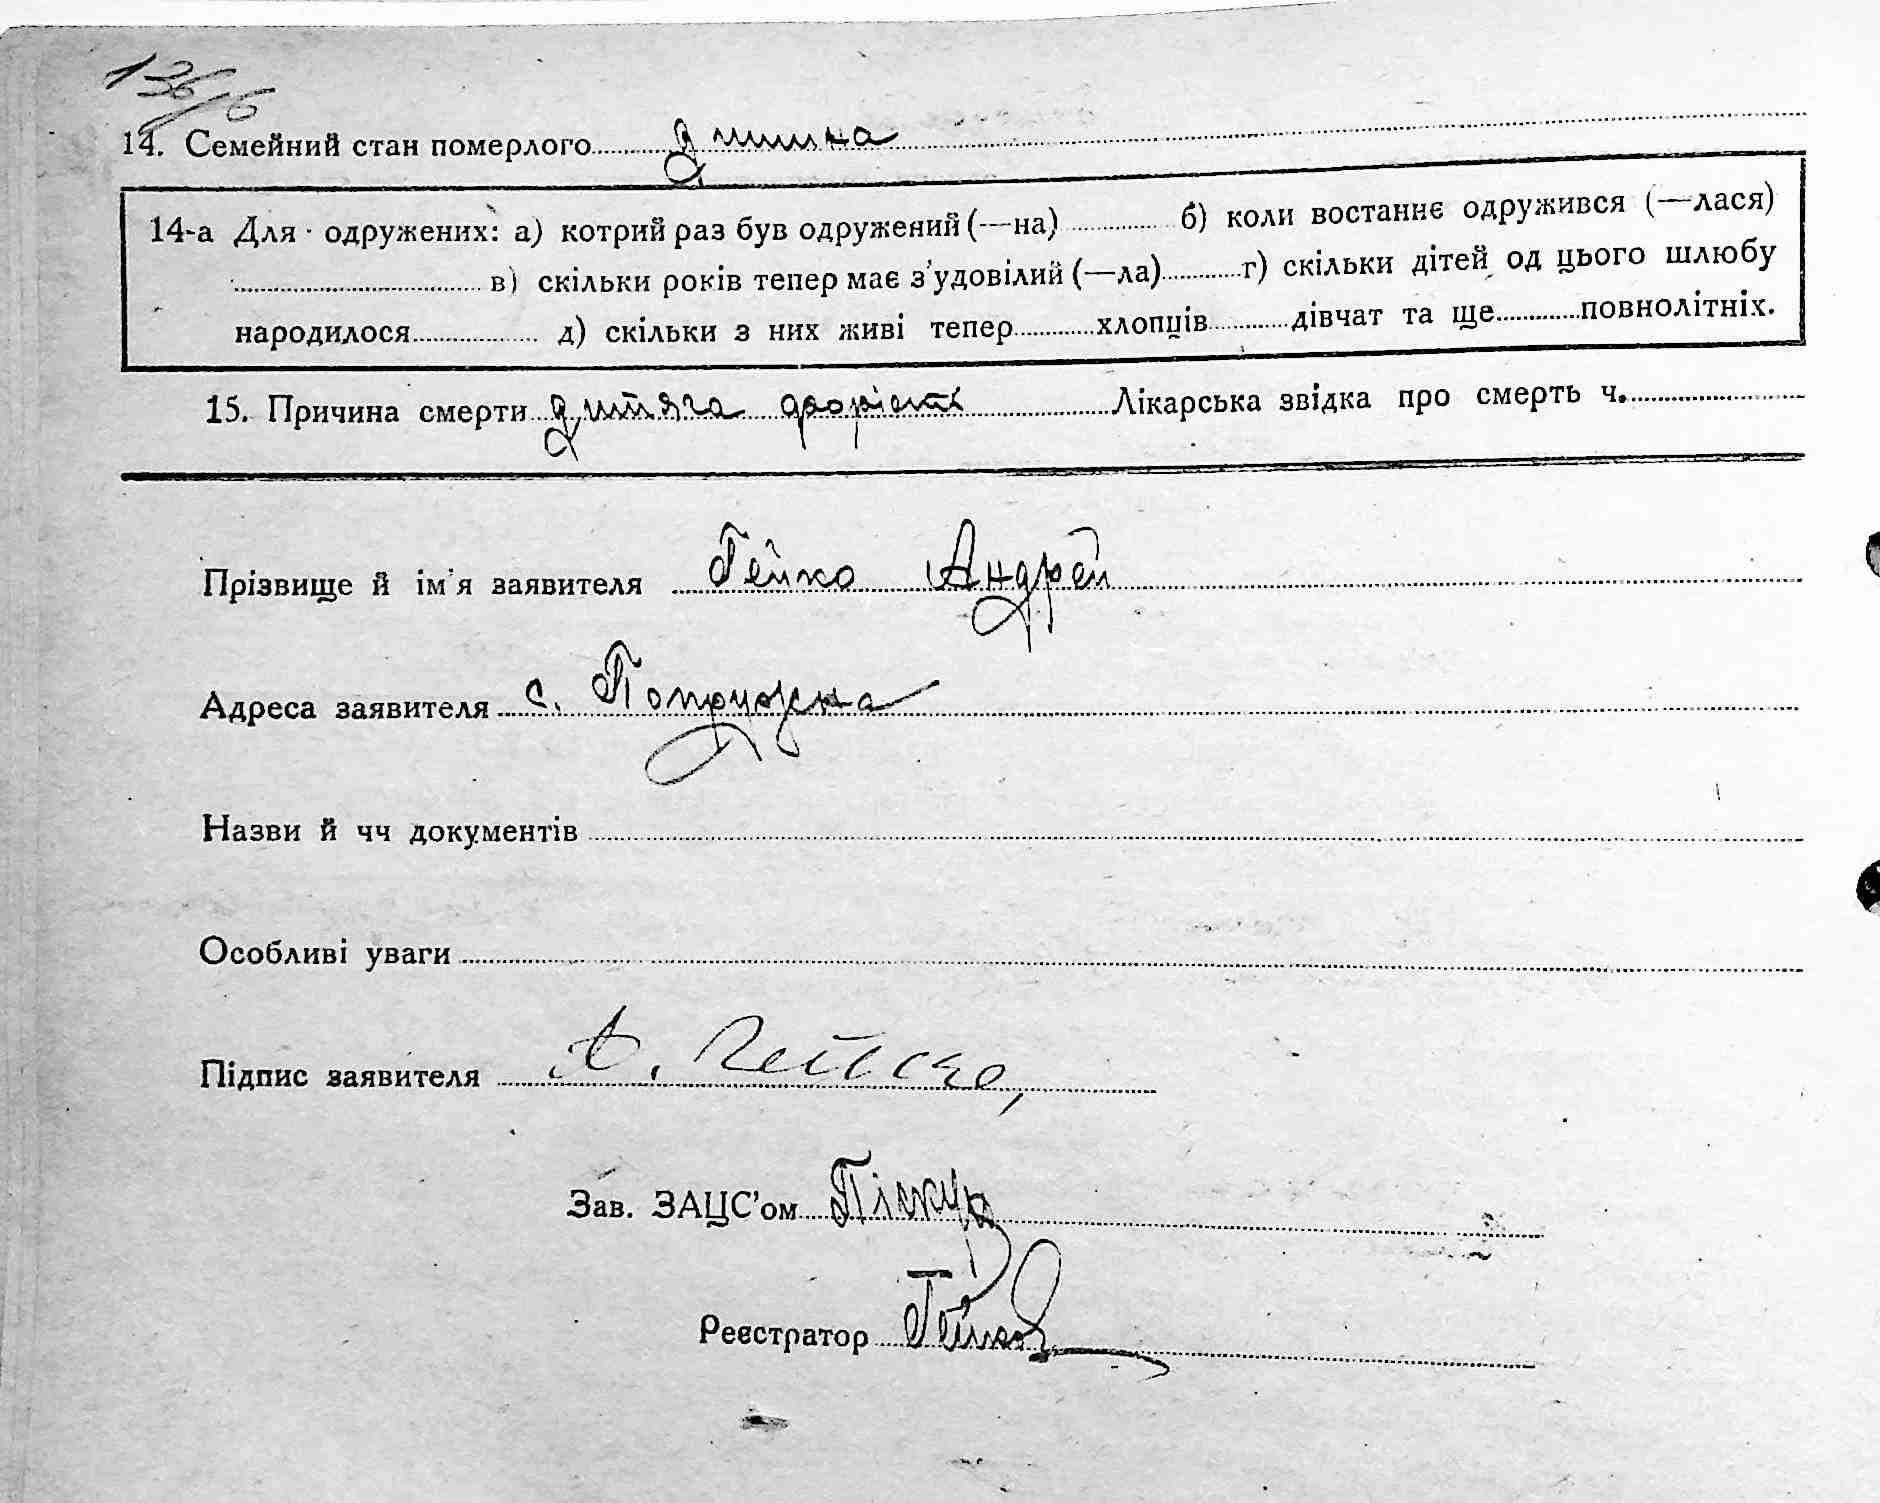 136/6
14. Семейний стан померлого дитина
14-а Для одружених: а) котрий раз був одружений (—на) б) коли востаннє одружився (—лася)
в) скільки років тепер має з'удовілий (—ла) г) скільки дітей од цього шлюбу
народилося д) скільки з них живі тепер хлопців дівчат та ще повнолітніх.
15. Причина смерти дитяча Лікарська звідка про смерть ч.
Прізвище й ім'я заявителя Гейко Андрей
Адреса заявителя с. Попружна
Назви й чч документів
Особливі уваги
Підпис заявителя А. Гейко
Зав. ЗАЦС'ом Піскур
Реєстратор Гейко